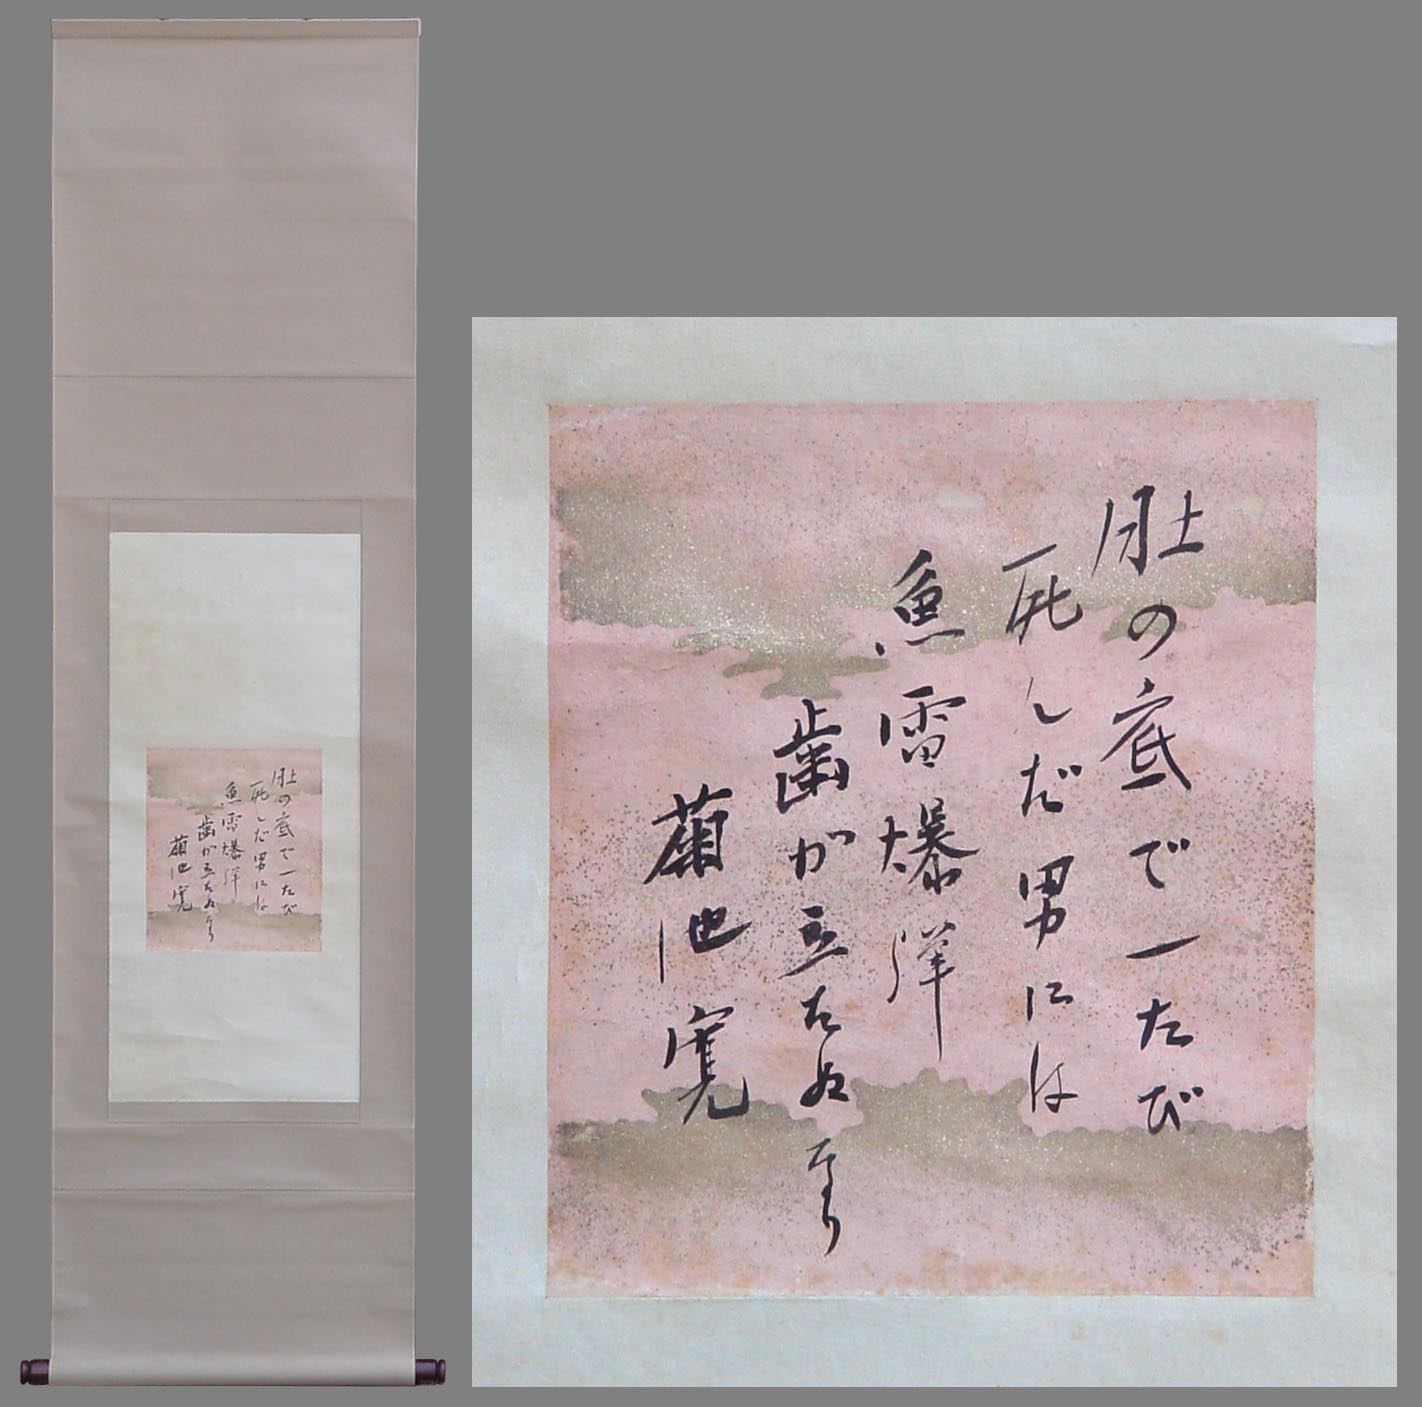 肚の底で一たび
死んだ男には
魚雷爆弾
歯が立たぬなり
菊池寛
肚の底で一たび
死んだ男には
魚雷爆弾
歯が立たぬなり
菊池寛